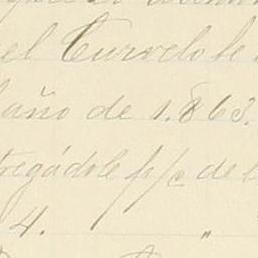 el Curvelo le
año de 1.863.
tregádole p/c de l
4. "